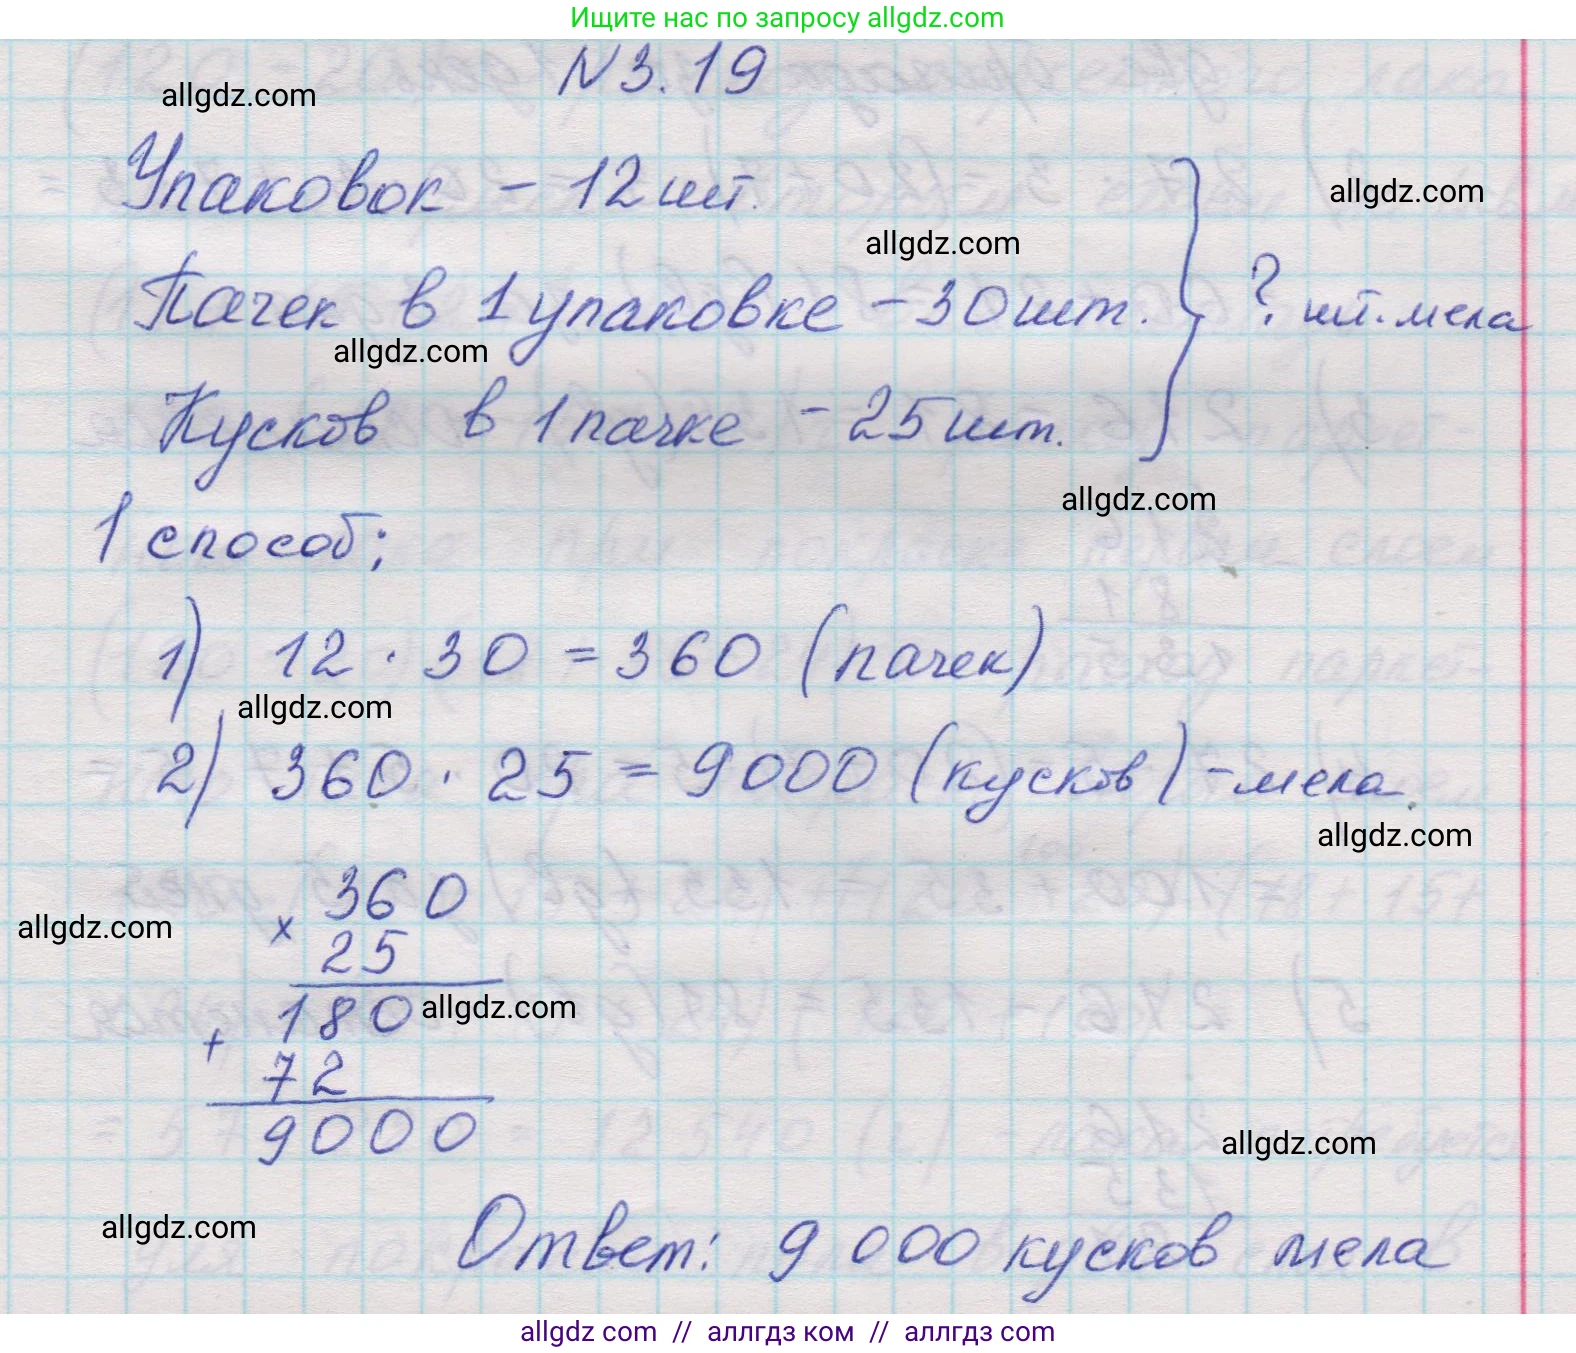 Ищите нас по запросу allgdz.com
N 3.19
allgdz.com
Упаковок - 12 шт.
allgdz.com
allgdz.com
Пачек в 1 упаковке - 30 шт.
? шт. мела
allgdz.com
Кусков в 1 пачке - 25 шт.
allgdz.com
1 способ;
1) 12 · 30 = 360 (пачек)
allgdz.com
2) 360 · 25 = 9000 (кусков) - мела
allgdz.com
360
allgdz.com
× 25
180
allgdz.com
+ 72
9000
allgdz.com
allgdz.com
Ответ: 9 000 кусков мела
allgdz.com // аллгдз ком // аллгдз.com